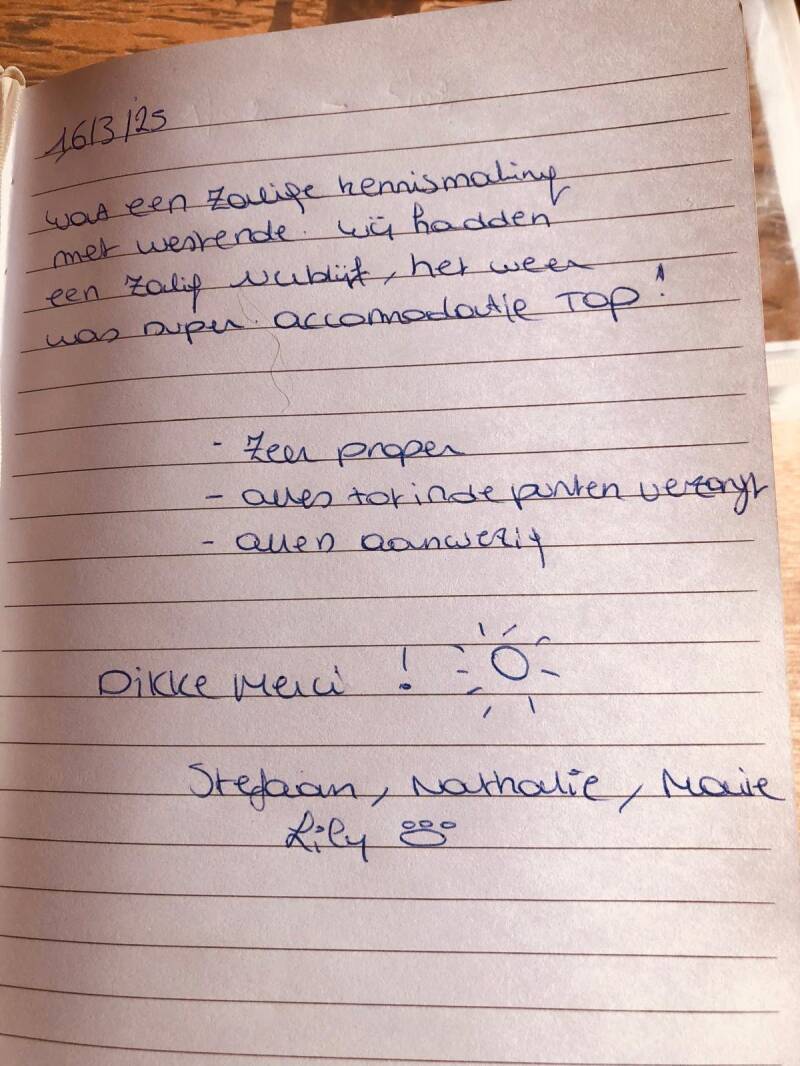 16/3/25
wat een zalige kennismaking
met westende. wij hadden
een zalig verblijf, het weer
was super. accomodatie TOP!
- Zeer proper
- alles tot in de punten verzorgt
- alles aanwezig
Dikke Merci !
Stefaan, Nathalie, Marie
Lily